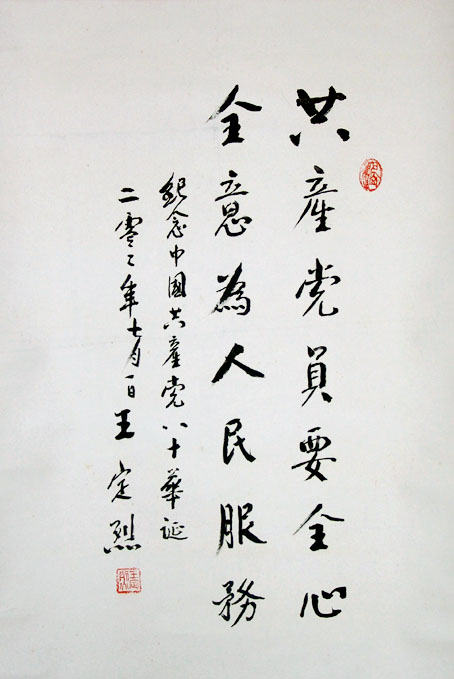 共產党員要全心
全意為人民服務
紀念中國共產党八十華誕
二零〻一年七月一日王定烈